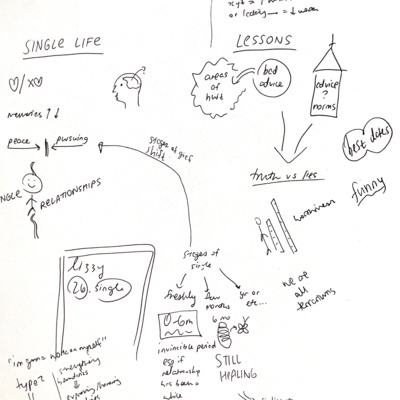 SINGLE LIFE
LESSONS
areas
of
hurt
bad
advice
advice
?
norms
memories ↑↓
peace
pursuing
stages of grief
shift
best dates
truth vs lies
funny
RELATIONSHIPS
worthiness
we are
all
Lizzy
26. single
stages of
single
freshly
few
months
yr or
etc...
0-6m
6 mo
invincible period
esp if
relationship
has been a
while
STILL
HEALING
"i'm gonna work on myself"
type?
strengthening